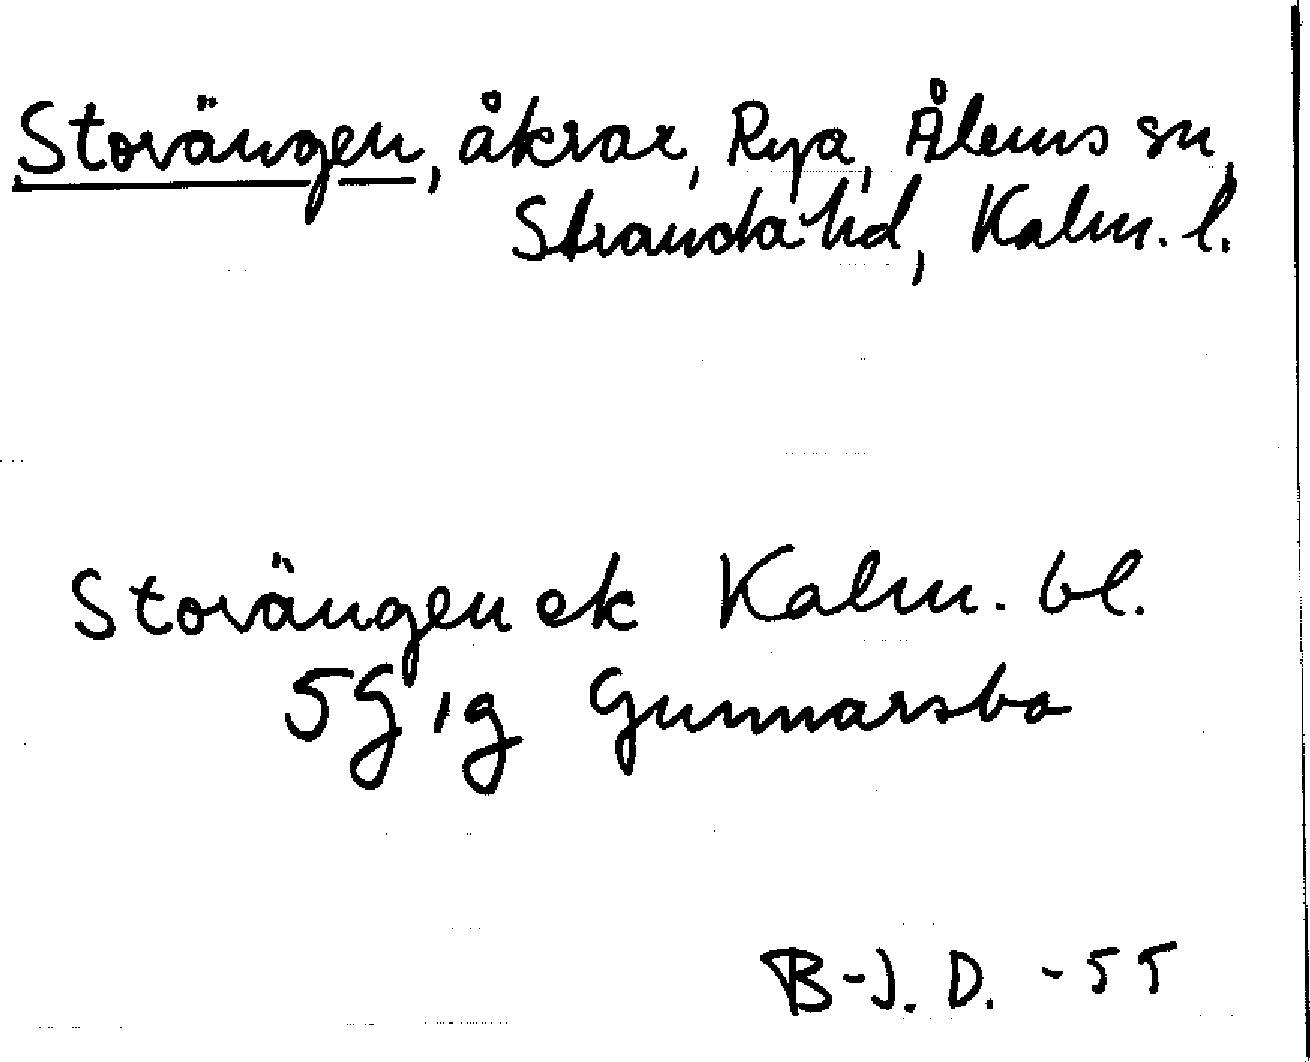 Stovängen, åkrar, Rya, Ålems sn,
Stranda hd, Kalm. l.
Stovängen ek Kalm. bl.
5G 1g Gunnarsbo
B-J. D. -55